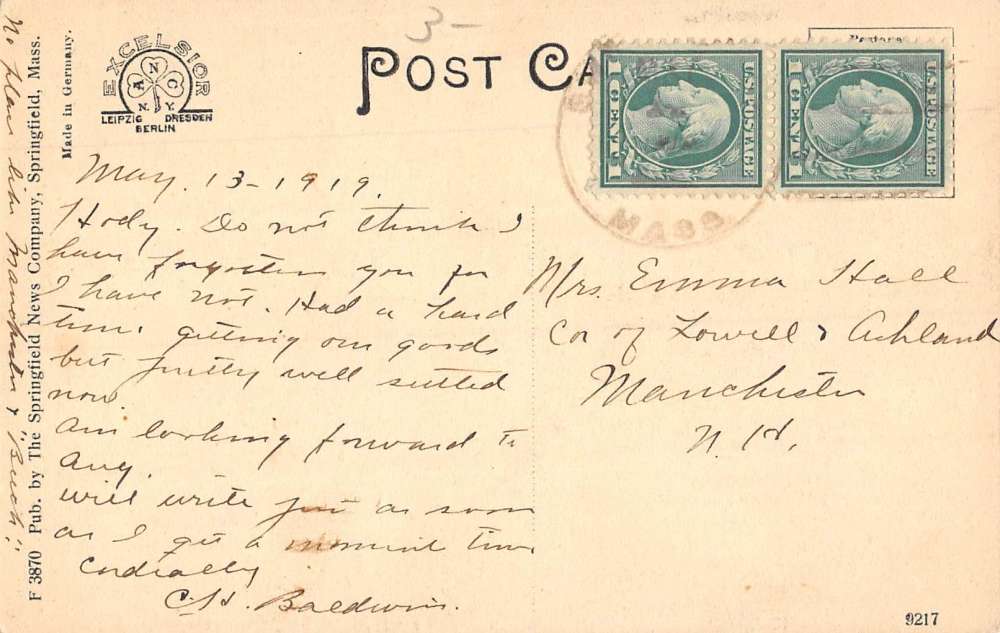 3-
POST CA
EXCELSIOR
A N C
N.Y.
LEIPZIG DRESDEN
BERLIN
Made in Germany.
F 3870 Pub. by The Springfield News Company, Springfield, Mass.
No place like Manchester & "Buch".
U.S. POSTAGE
1 CENT 1
U.S. POSTAGE
1 CENT 1
MASS
May. 13-1919.
Hody. Do not think I
have forgotten you for
I have not. Had a hard
time getting our goods
but pretty well settled
now
am looking forward to
Aug.
will write just as soon
as I get a moment time
Cordially
C.H. Baldwin.
Mrs. Emma Hall
Cor of Lowell & Ashland
Manchester
N. H.
9217